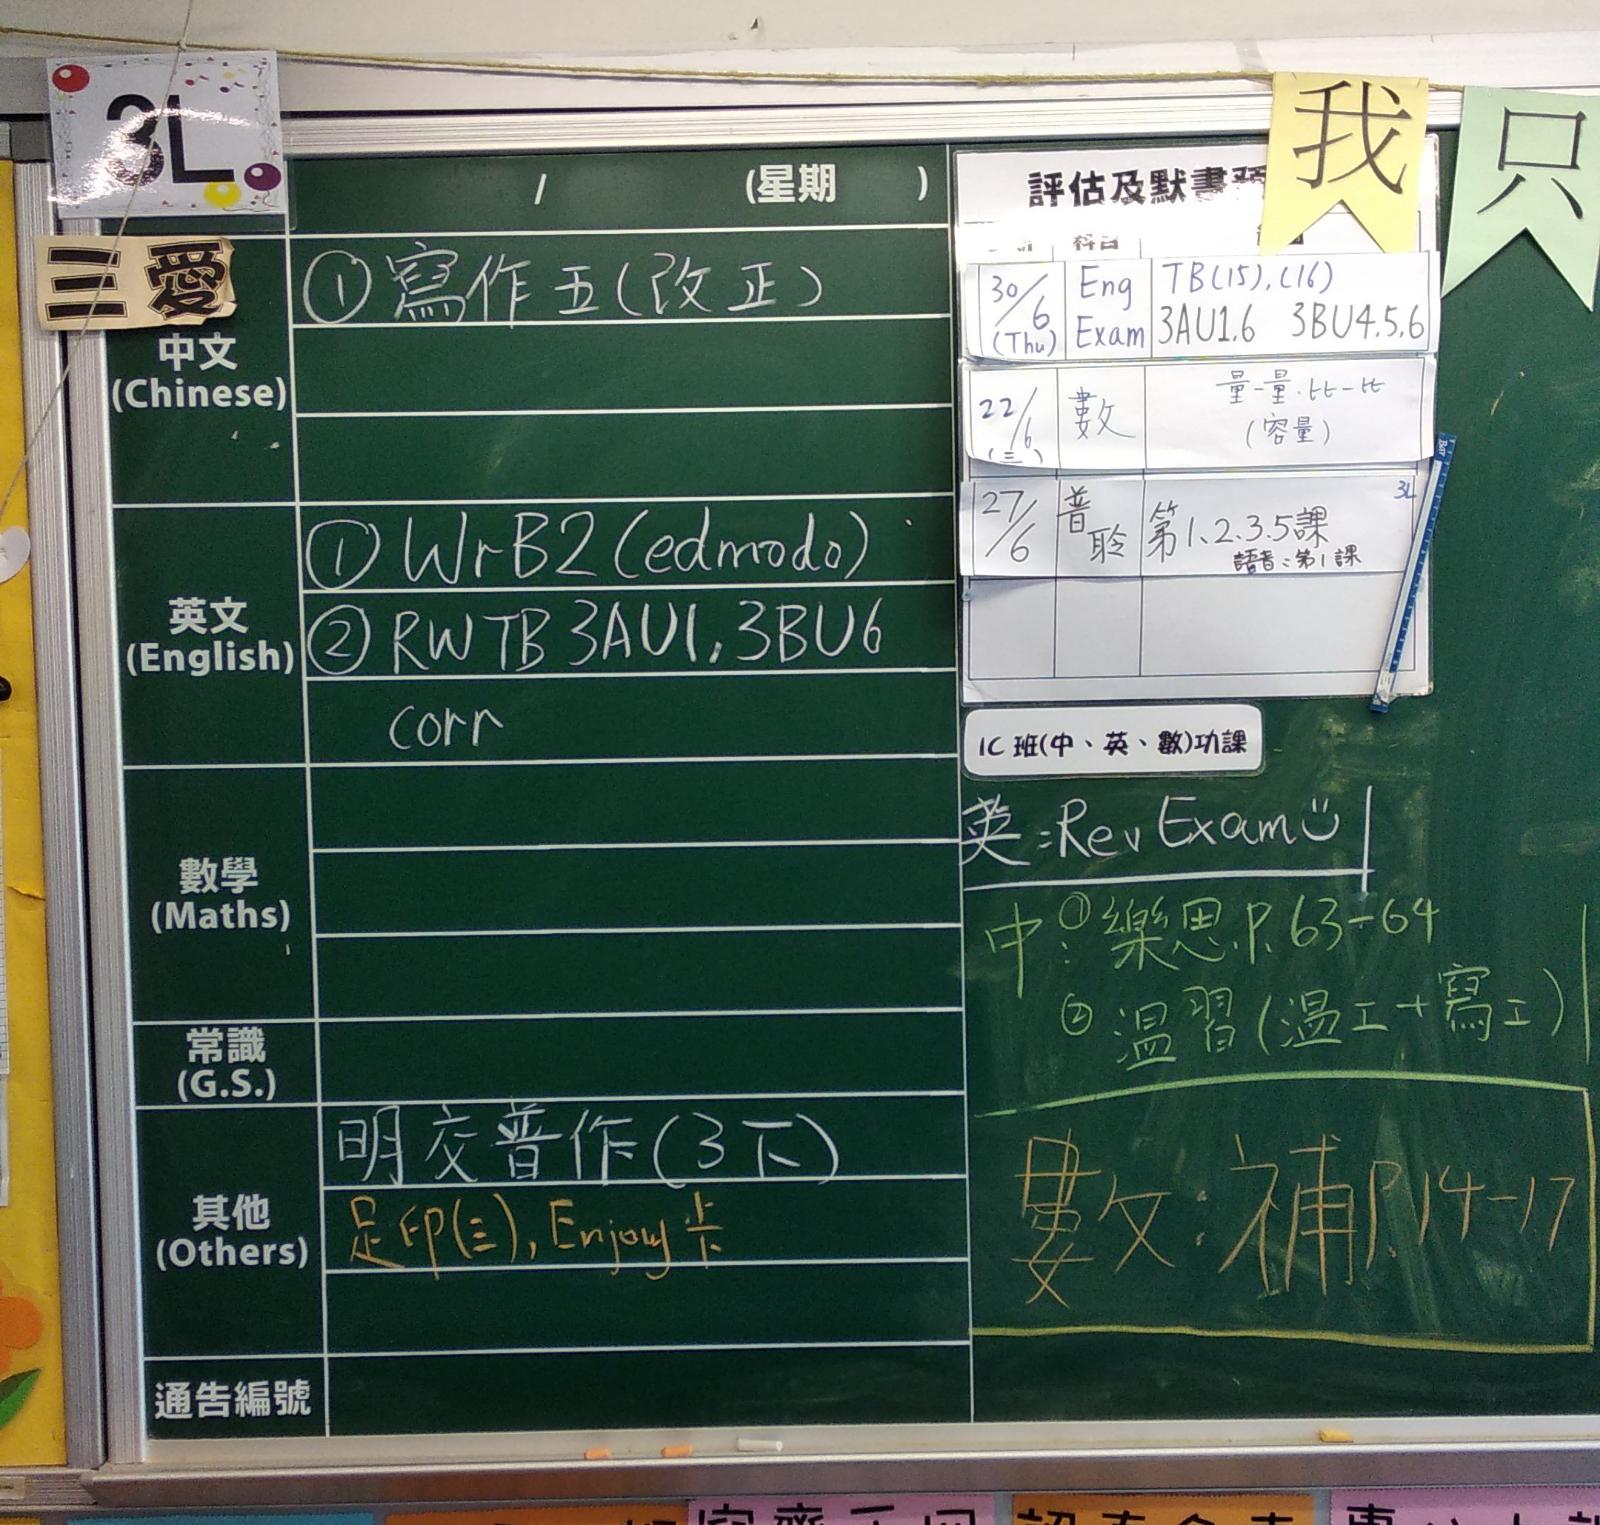 3L
三愛
/ (星期 )
中文
(Chinese)
①寫作五(改正)
英文
(English)
①WrB2(edmodo)
②RW TB 3AU1, 3BU6
corr
數學
(Maths)
常識
(G.S.)
其他
(Others)
明交普作(3下)
足印(三), Enjoy卡
通告編號
我
只
評估及默書
科目
30/6 (Thu) Eng Exam TB(15),(16)
3AU1,6 3BU4,5,6
22/6 (三) 數 量-量,比-比
(容量)
27/6 普聆 第1.2.3.5課 3L
語音:第1課
1C 班(中、英、數)功課
英:Rev Exam
中:①樂思P.63-64
②溫習(溫工+寫工)
數:補P.14-17